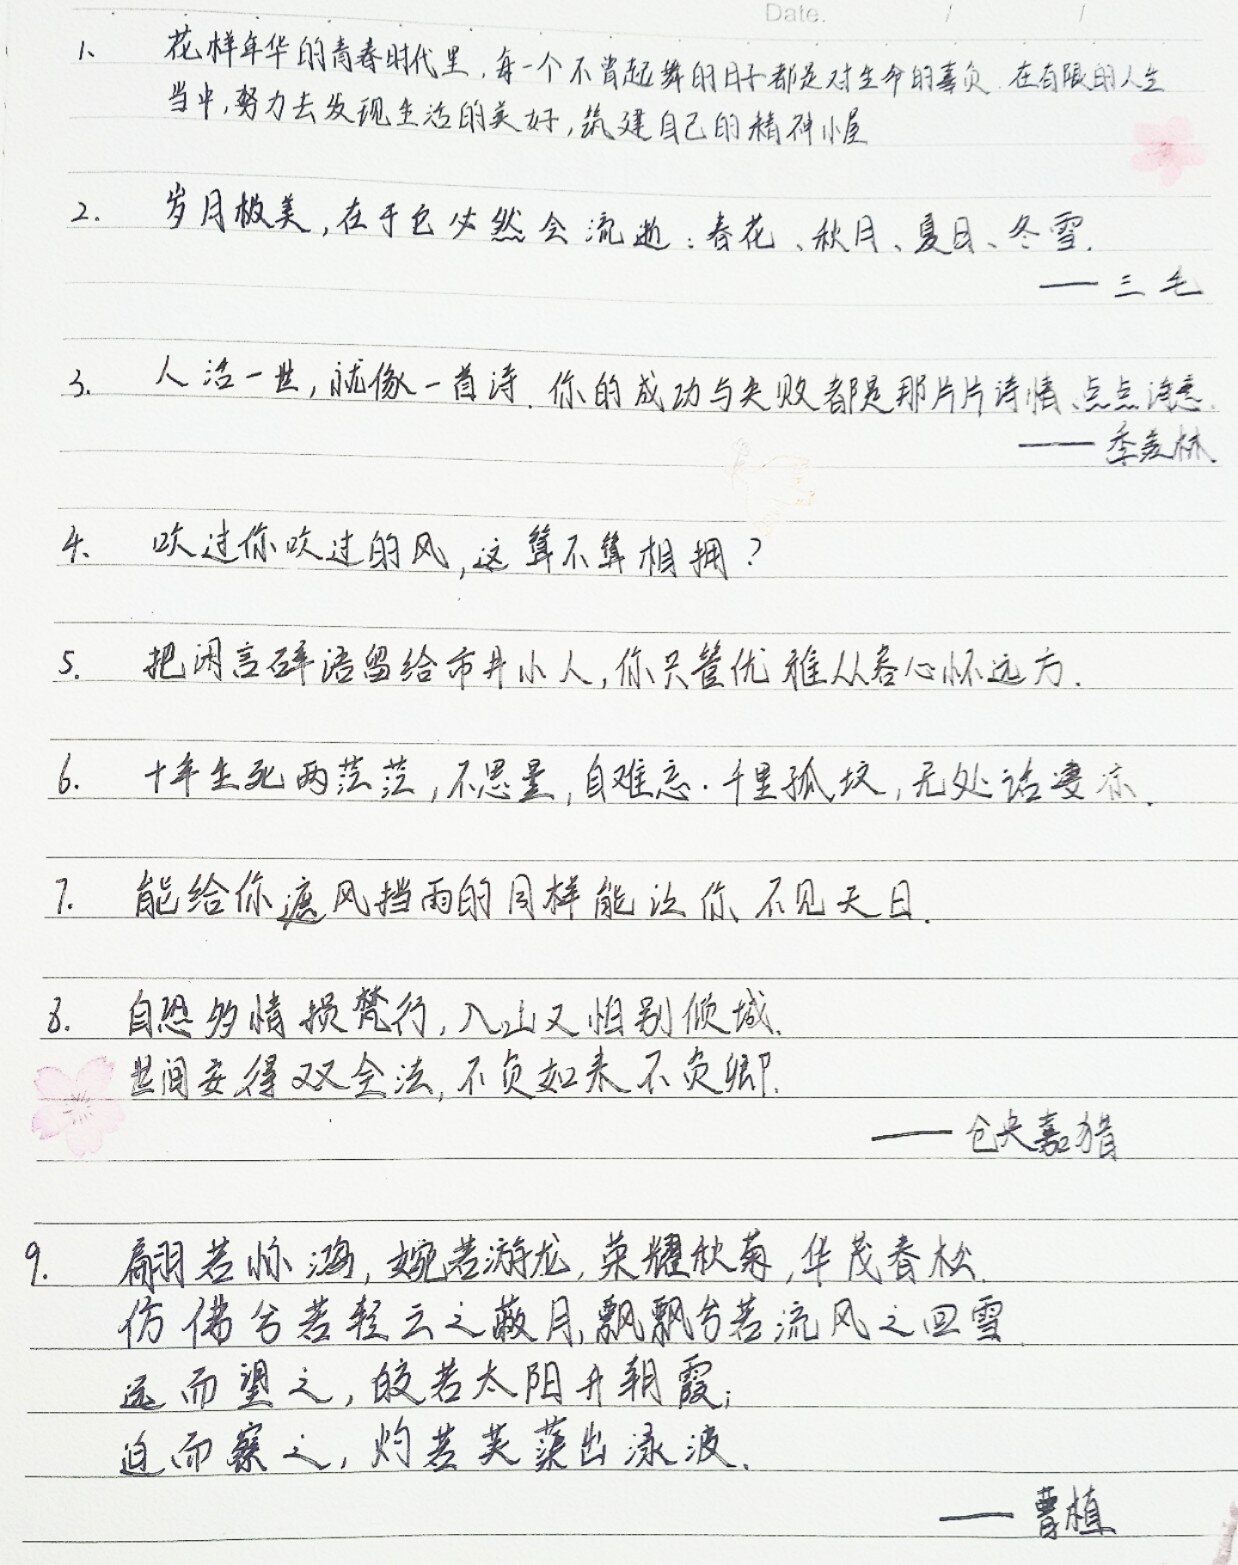 Date. / /
1、 花样年华的青春时代里，每一个不曾起舞的日子都是对生命的辜负．在有限的人生
当中，努力去发现生活的美好，筑建自己的精神小屋
2. 岁月极美，在于它必然会流逝：春花、秋月、夏日、冬雪．
—— 三毛
3. 人活一世，就像一首诗．你的成功与失败都是那片片诗情、点点诗意．
—— 季羡林
4. 吹过你吹过的风，这算不算相拥？
5. 把闲言碎语留给市井小人，你只管优雅从容心怀远方．
6. 十年生死两茫茫，不思量，自难忘．千里孤坟，无处话凄凉．
7. 能给你遮风挡雨的同样能让你不见天日．
8. 自恐多情损梵行，入山又怕别倾城．
世间安得双全法，不负如来不负卿．
—— 仓央嘉措
9. 翩若惊鸿，婉若游龙，荣耀秋菊，华茂春松．
仿佛兮若轻云之蔽月，飘飘兮若流风之回雪
远而望之，皎若太阳升朝霞；
迫而察之，灼若芙蕖出渌波．
—— 曹植